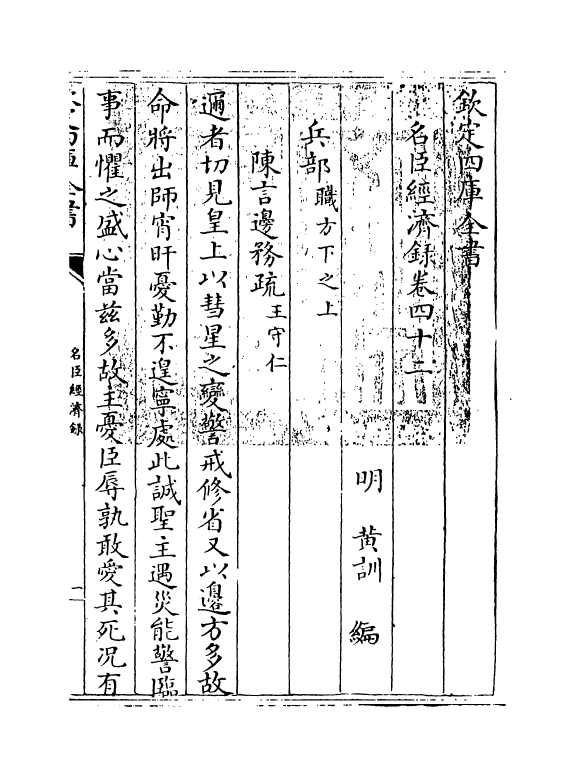 欽定四庫全書
名臣經濟録卷四十二
明 黄訓 編
兵部職方下之上
陳言邊務疏王守仁
邇者切見皇上以彗星之變警戒修省又以邊方多故
命將出師宵旰憂勤不遑寧處此誠聖主遇災能警臨
事而懼之盛心當兹多故主憂臣辱孰敢愛其死况有
名臣經濟録
一